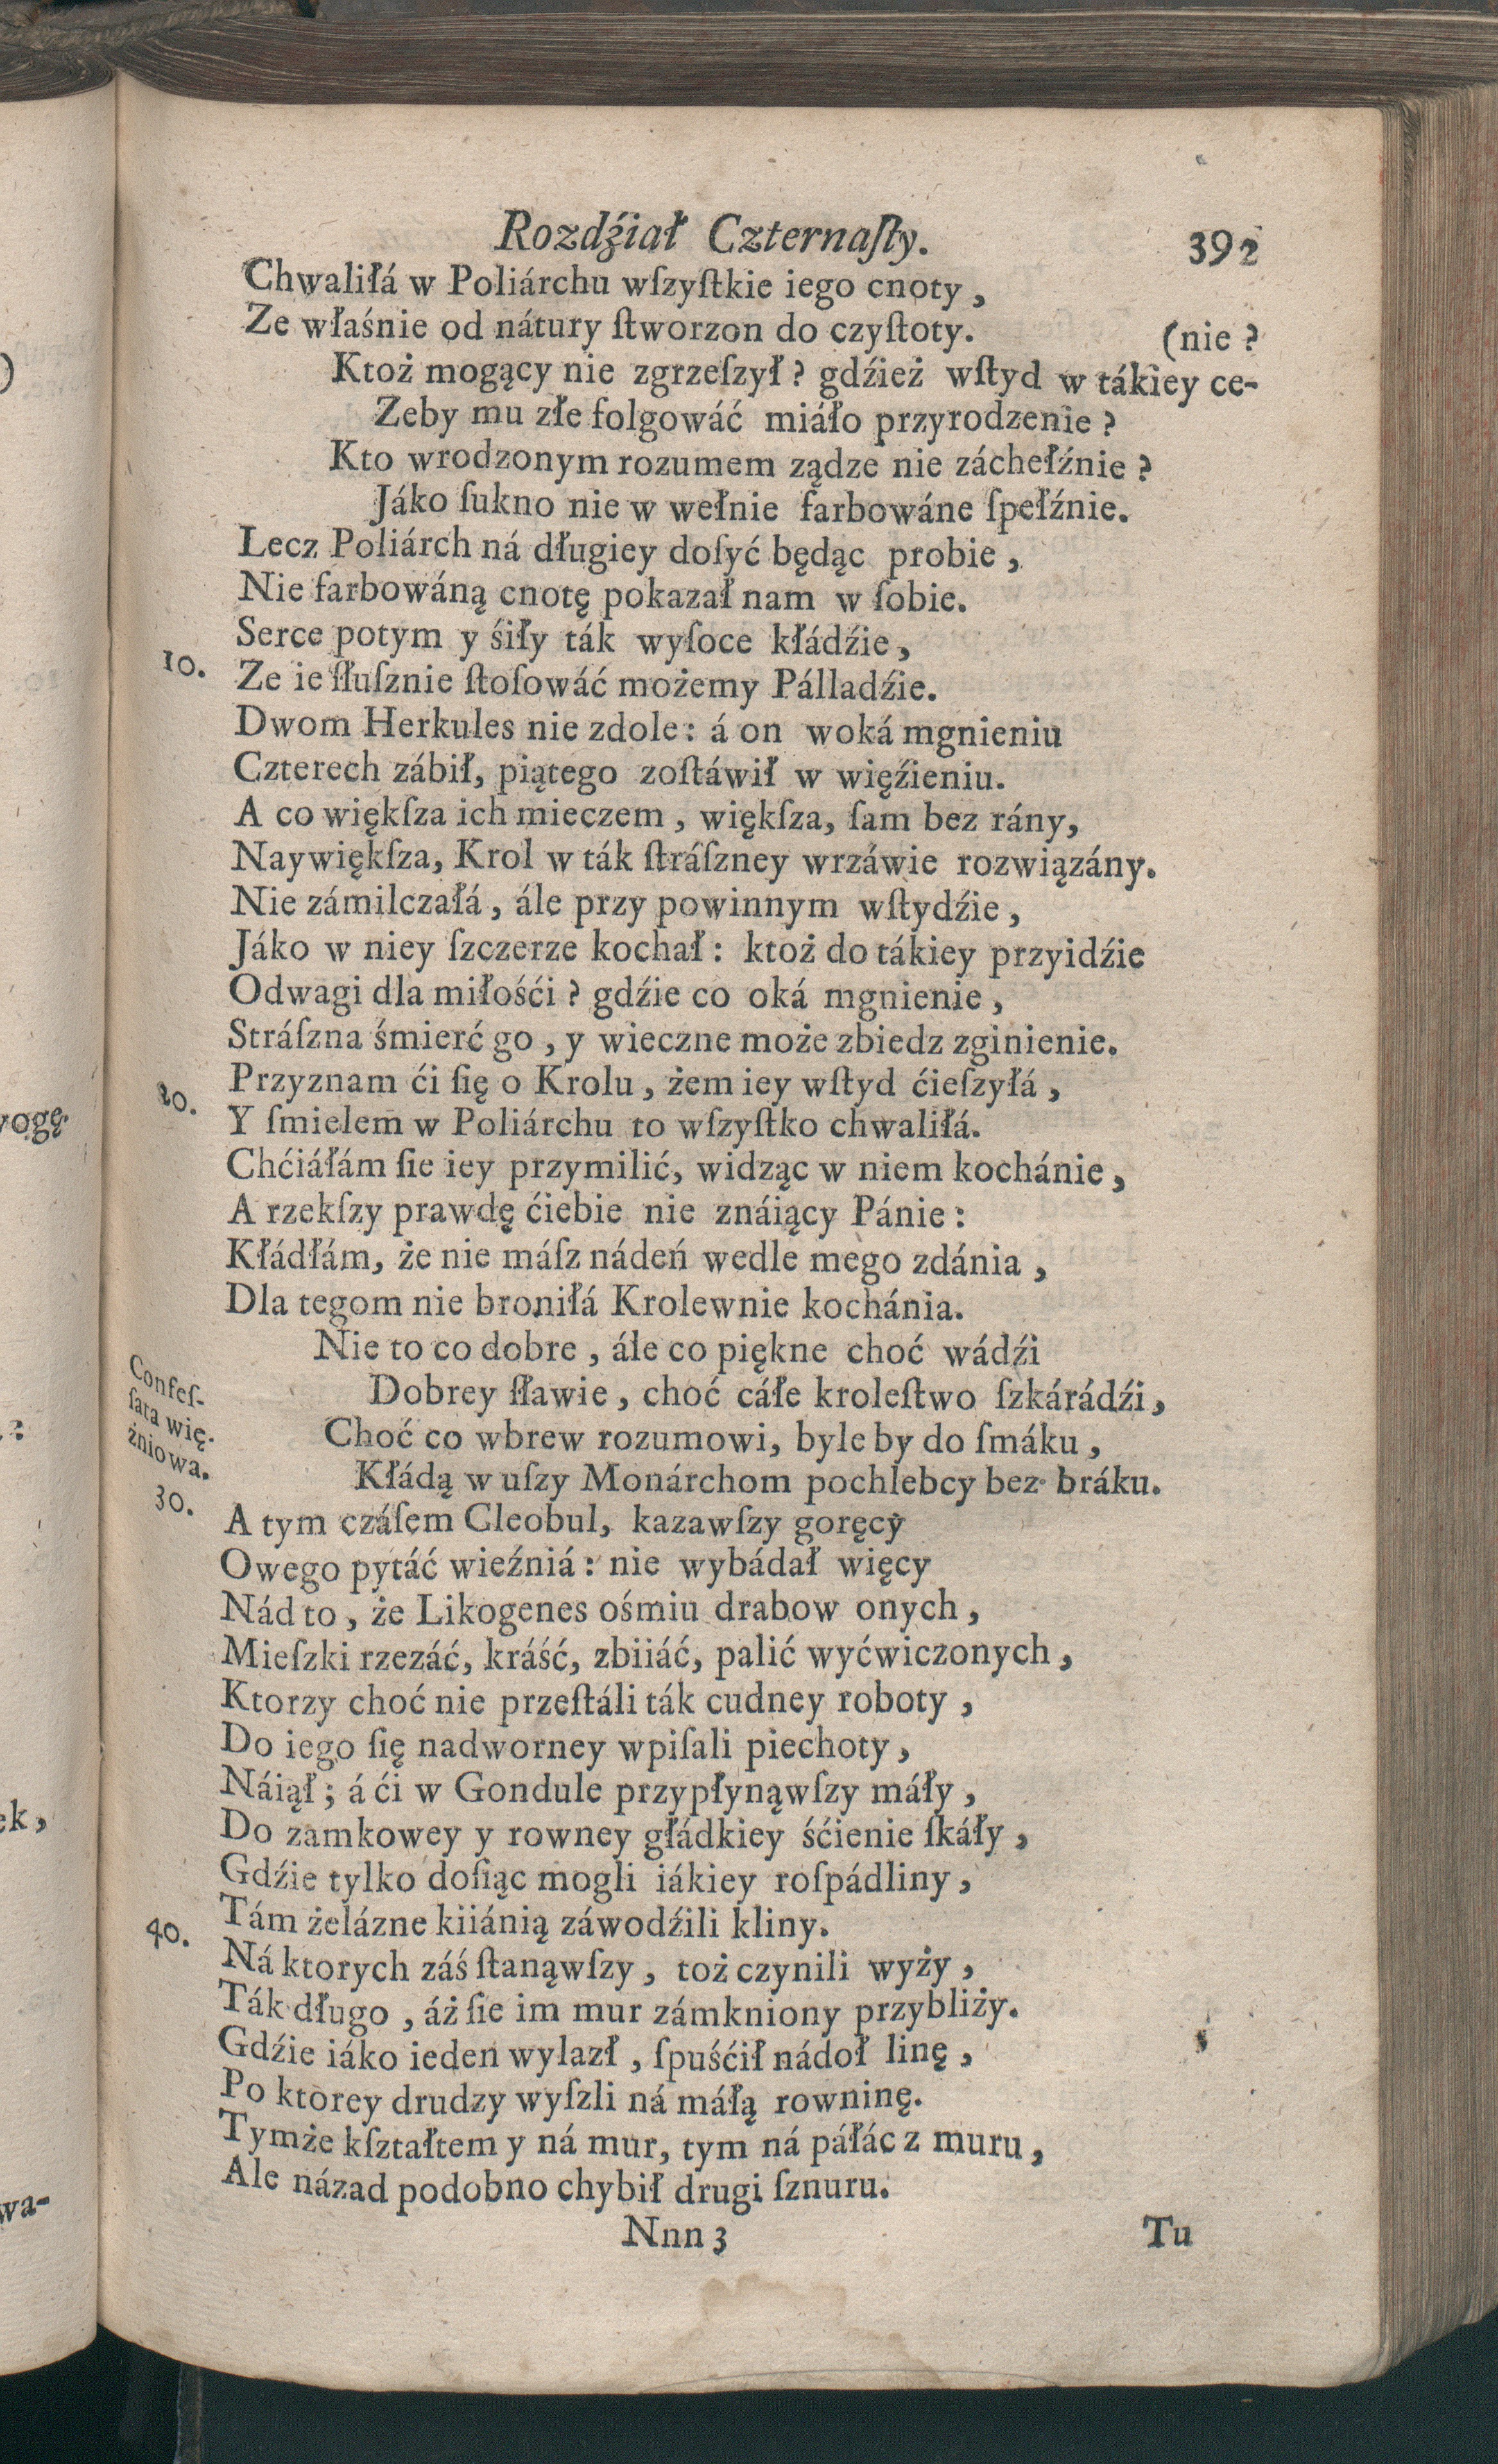 Rozdźiał Czternaſty. 392
Chwaliłá w Poliárchu wſzyſtkie iego cnoty,
Ze właśnie od nátury ſtworzon do czyſtoty. (nie?
Ktoż mogący nie zgrzeſzył? gdźież wſtyd w tákiey ce-
Zeby mu złe folgowáć miáło przyrodzenie?
Kto wrodzonym rozumem ządze nie záchełźnie?
Jáko ſukno nie w wełnie farbowáne ſpełźnie.
Lecz Poliárch ná długiey doſyć będąc probie,
Nie farbowáną cnotę pokazał nam w ſobie.
Serce potym y śiły ták wyſoce kłádźie,
10. Ze ie ſłuſznie ſtoſowáć możemy Pálladźie.
Dwom Herkules nie zdole: á on woká mgnieniu
Czterech zábił, piątego zoſtáwił w więźieniu.
A co więkſza ich mieczem, więkſza, ſam bez rány,
Naywiękſza, Krol w ták ſtráſzney wrzáwie rozwiązány.
Nie zámilczałá, ále przy powinnym wſtydźie,
Jáko w niey ſzczerze kochał: ktoż do tákiey przyidźie
Odwagi dla miłośći? gdźie co oká mgnienie,
Stráſzna śmierć go, y wieczne może zbiedz zginienie.
Przyznam ći ſię o Krolu, żem iey wſtyd ćieſzyłá,
20. Y ſmielem w Poliárchu to wſzyſtko chwaliłá.
Chćiáłám ſie iey przymilić, widząc w niem kochánie,
A rzekſzy prawdę ćiebie nie znáiący Pánie:
Kłádłám, że nie máſz nádeń wedle mego zdánia,
Dla tegom nie broniłá Krolewnie kochánia.
Nie to co dobre, ále co piękne choć wádźi
Dobrey ſławie, choć cáłe kroleſtwo ſzkárádźi,
Choć co wbrew rozumowi, byle by do ſmáku,
Kłádą w uſzy Monárchom pochlebcy bez bráku.
Confeſ-
ſata wię-
źniowa.
30. A tym czáſem Cleobul, kazawſzy goręcy
Owego pytáć wieźniá: nie wybádał więcy
Nád to, że Likogenes ośmiu drabow onych,
Mieſzki rzezáć, kráść, zbiiáć, palić wyćwiczonych,
Ktorzy choć nie przeſtáli ták cudney roboty,
Do iego ſię nadworney wpiſali piechoty,
Náiął; á ći w Gondule przypłynąwſzy máły,
Do zamkowey y rowney głádkiey śćienie ſkáły,
Gdźie tylko doſiąc mogli iákiey roſpádliny,
40. Tám żelázne kiiánią záwodźili kliny.
Ná ktorych záś ſtanąwſzy, toż czynili wyży,
Ták długo, áż ſie im mur zámkniony przybliży.
Gdźie iáko ieden wylazł, ſpuśćił nádoł linę,
Po ktorey drudzy wyſzli ná máłą rowninę.
Tymże kſztałtem y ná mur, tym ná páłác z muru,
Ale názad podobno chybił drugi ſznuru.
Nnn 3 Tu
)
vogę.
ek,
wa-